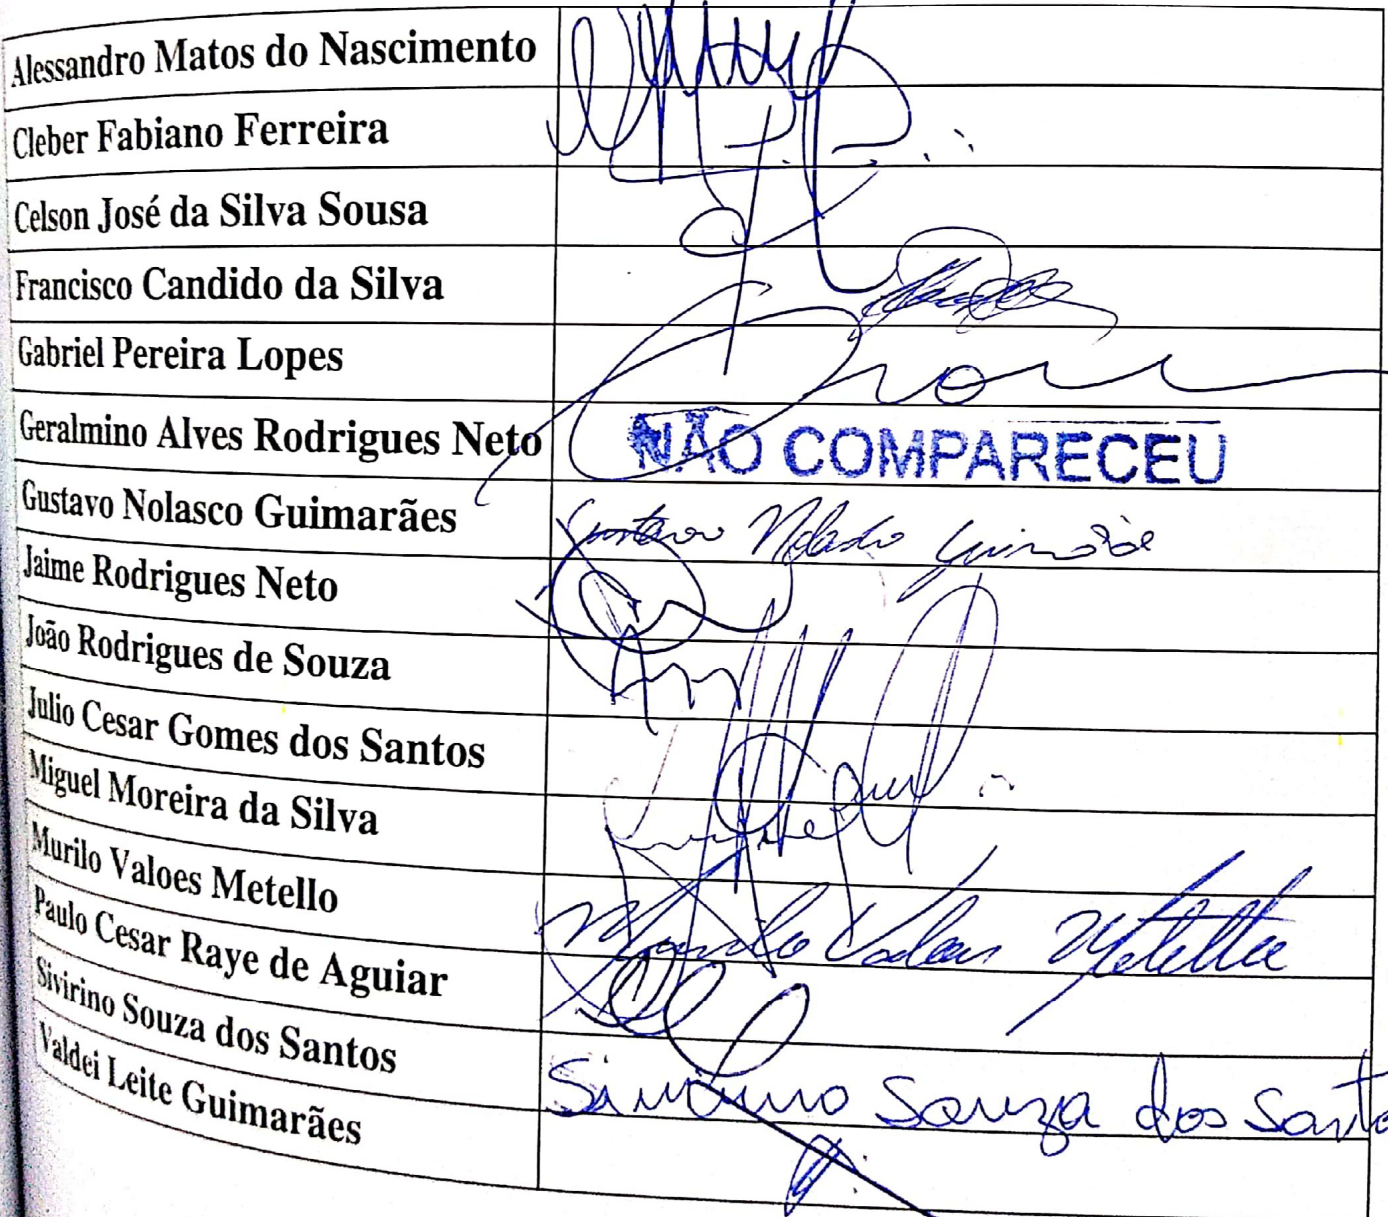 Alessandro Matos do Nascimento
Cleber Fabiano Ferreira
Celson José da Silva Sousa
Francisco Candido da Silva
Gabriel Pereira Lopes
Geralmino Alves Rodrigues Neto NÃO COMPARECEU
Gustavo Nolasco Guimarães Gustavo Nolasco Guimarães
Jaime Rodrigues Neto
João Rodrigues de Souza
Julio Cesar Gomes dos Santos
Miguel Moreira da Silva
Murilo Valoes Metello Murilo Valoes Metello
Paulo Cesar Raye de Aguiar
Sivirino Souza dos Santos Sivirino Souza dos Santo
Valdei Leite Guimarães